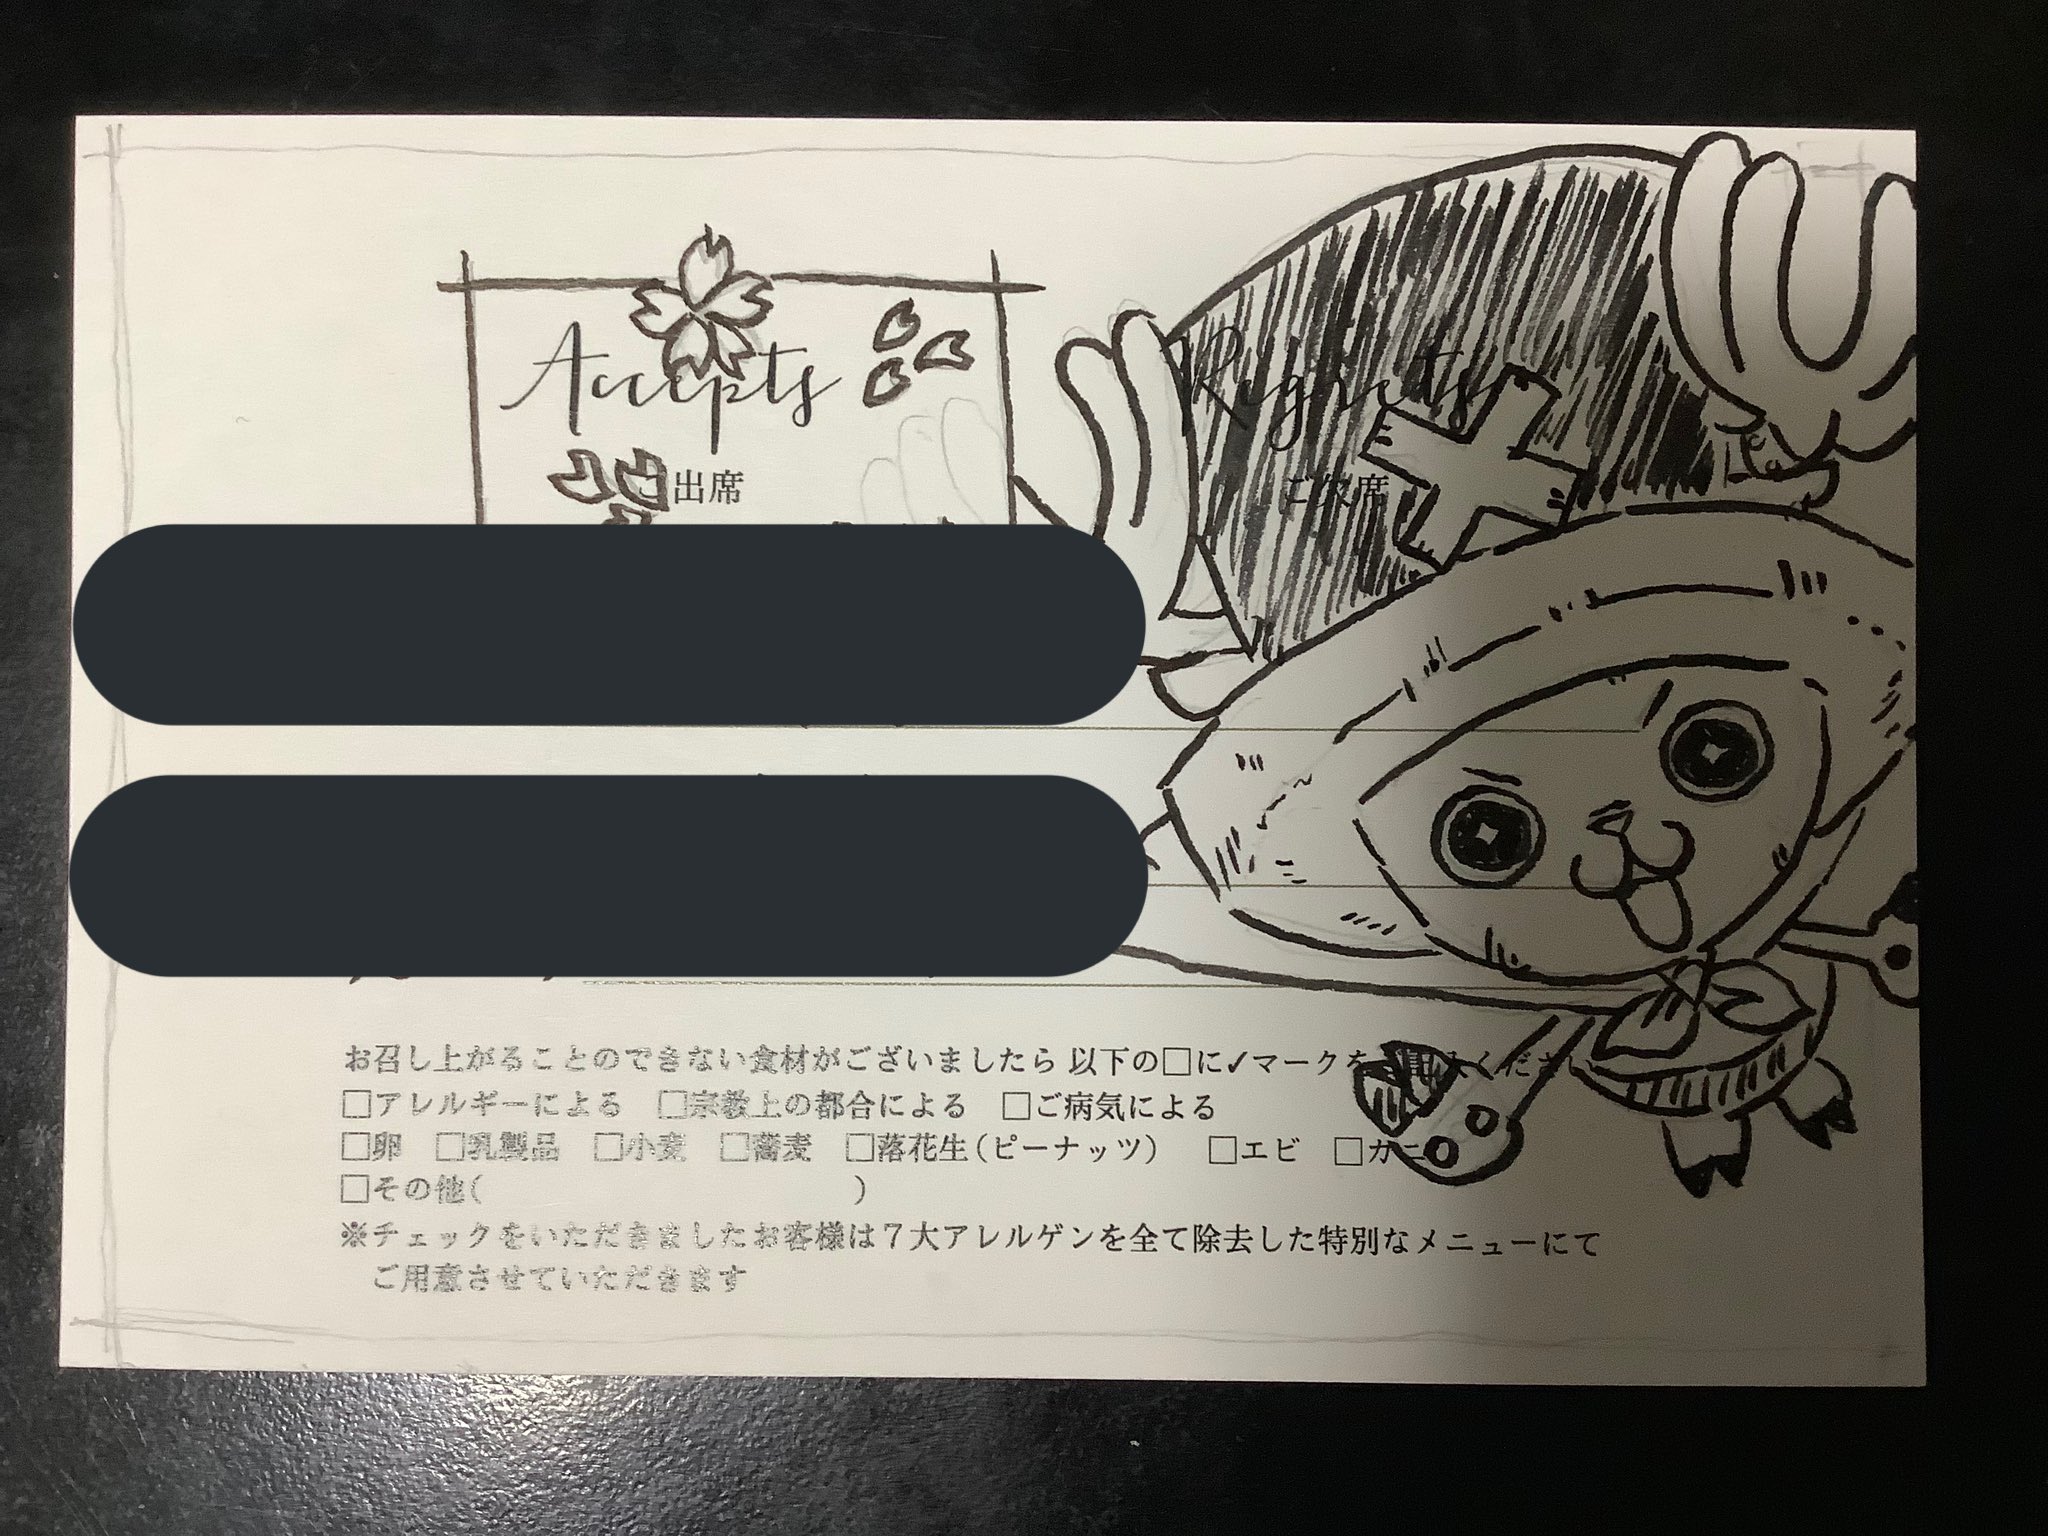 Accepts
Regrets
出席
ご欠席
お召し上がることのできない食材がございましたら 以下の□に✓マークをご記入ください
□アレルギーによる □宗教上の都合による □ご病気による
□卵 □乳製品 □小麦 □蕎麦 □落花生(ピーナッツ) □エビ □カニ
□その他( )
※チェックをいただきましたお客様は7大アレルゲンを全て除去した特別なメニューにて
ご用意させていただきます